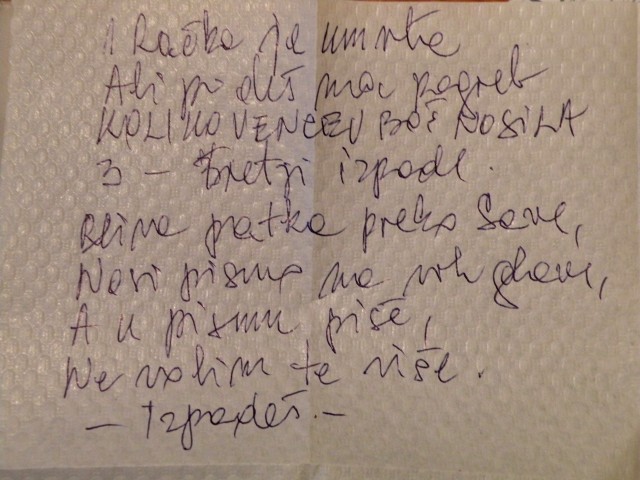 1 Račka je umrla
Ali pojdeš na pogreb
KOLIKO VENCEV BOŠ NOSILA
3 - Tretji izpade.
Plina patka preko Save,
Nosi pismo na vrh glave,
A u pismu piše,
Ne volim te više.
- Izpadeš. -